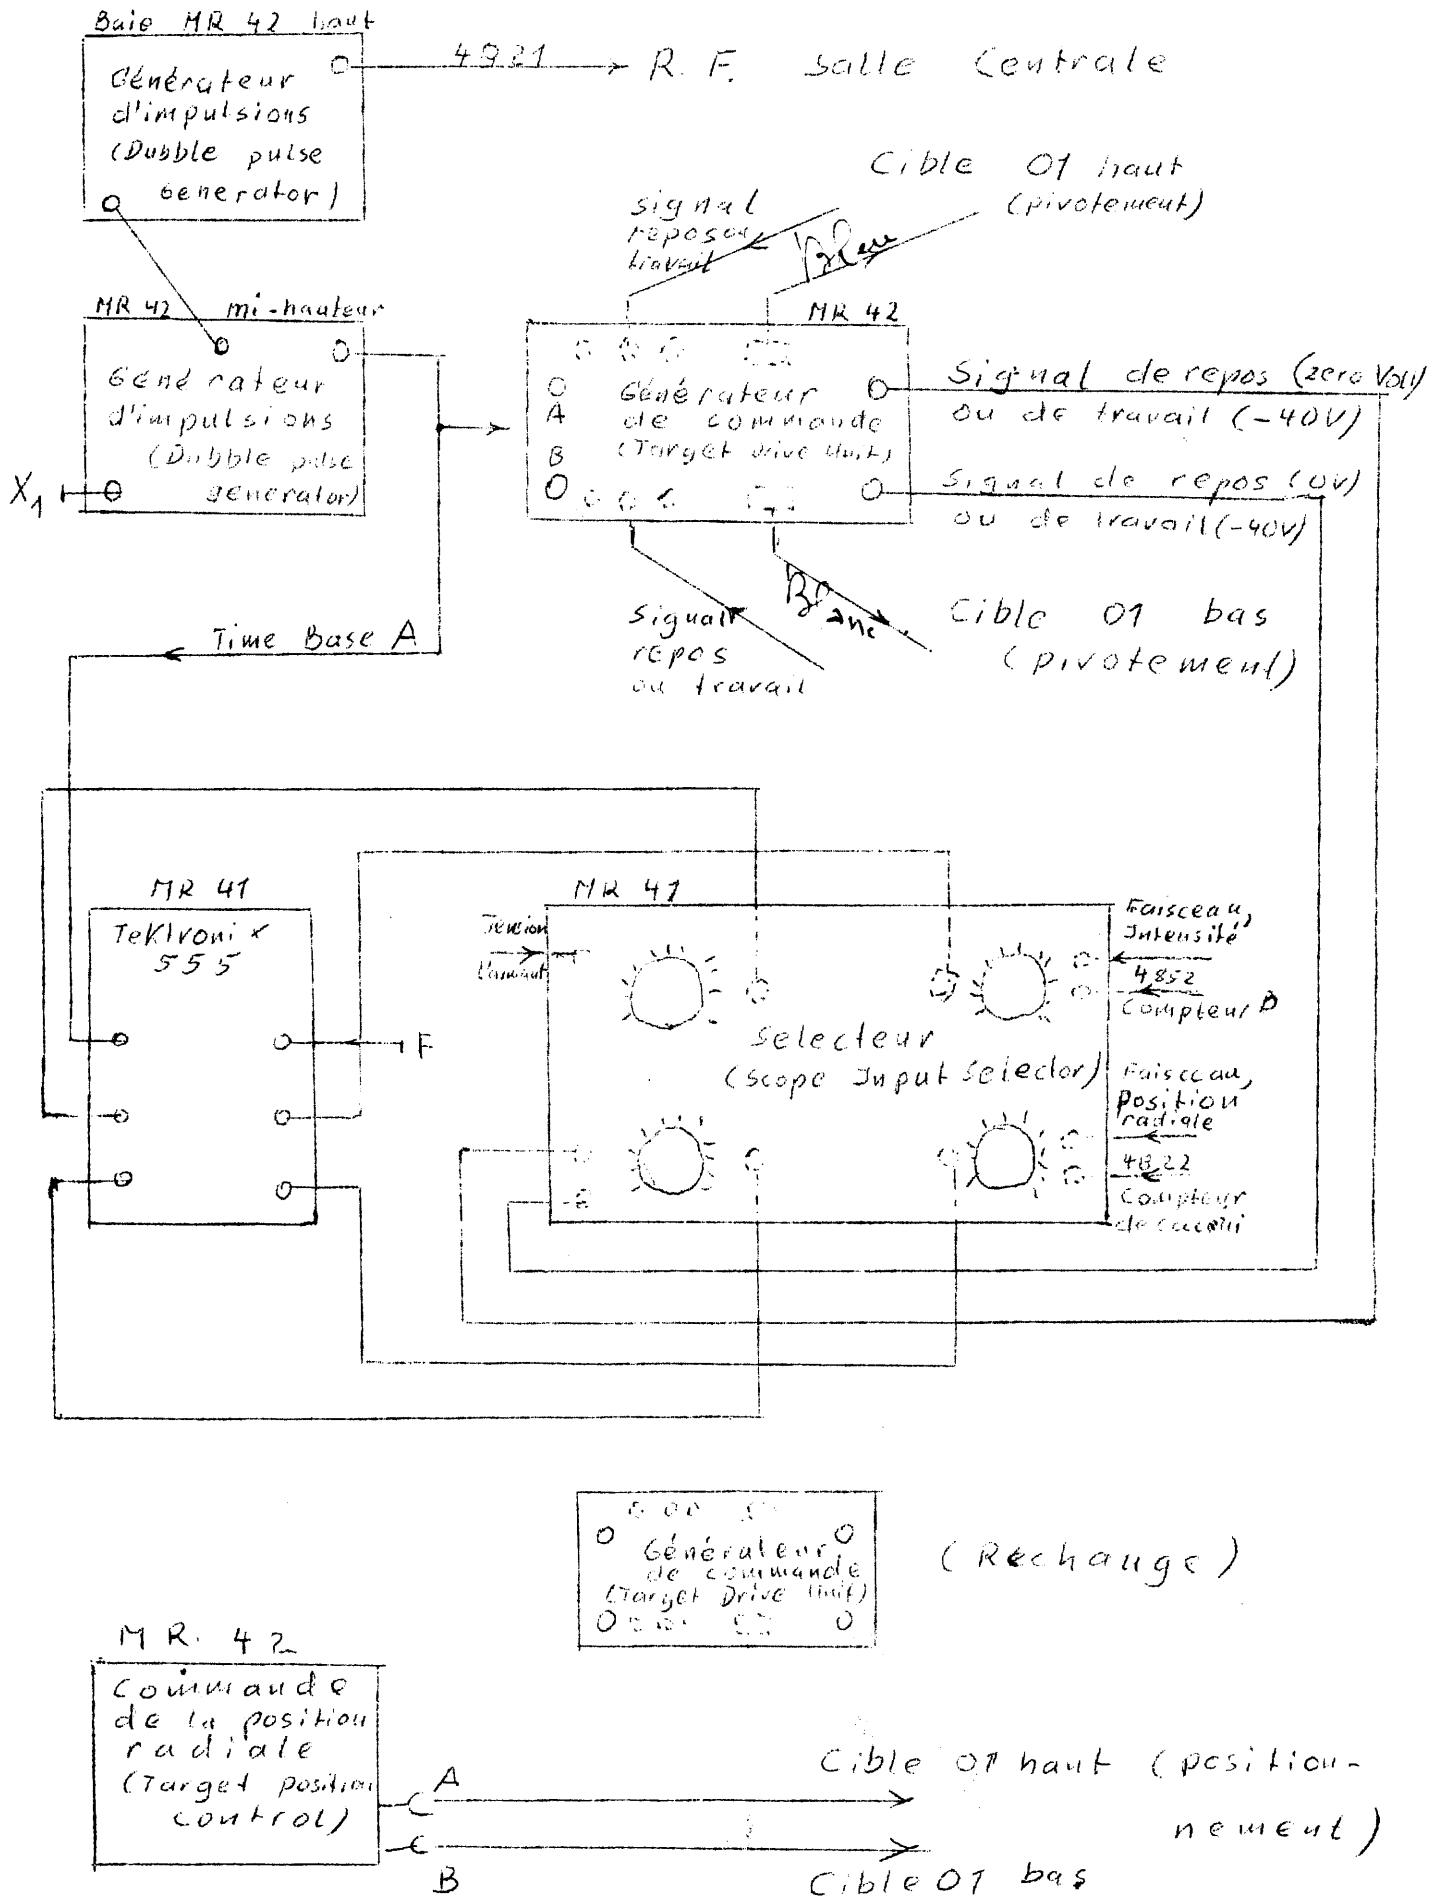 Baie MR 42 haut
Générateur
d'impulsions
(Dubble pulse
Generator)
4921
R. F. Salle Centrale
Cible 01 haut
(pivotement)
signal
repos ou
travail
Bleu
MR 42 mi-hauteur
Générateur
d'impulsions
(Dubble pulse
generator)
X1
MR 42
A
B
Générateur
de commande
(Target drive Unit)
Signal de repos (zero Volt)
ou de travail (-40V)
Signal de repos (0V)
ou de travail (-40V)
Blanc
Signal
repos
ou travail
Cible 01 bas
(pivotement)
Time Base A
MR 41
Tektronix
555
F
MR 41
Tension
Selecteur
(Scope Input Selector)
Faisceau,
Intensité
4852
Compteur B
Faisceau,
position
radiale
4822
Compteur
de
Générateur
de commande
(Target Drive Unit)
(Rechange)
MR. 42
Commande
de la position
radiale
(Target position
control)
A
B
Cible 01 haut (position-
nement)
Cible 01 bas